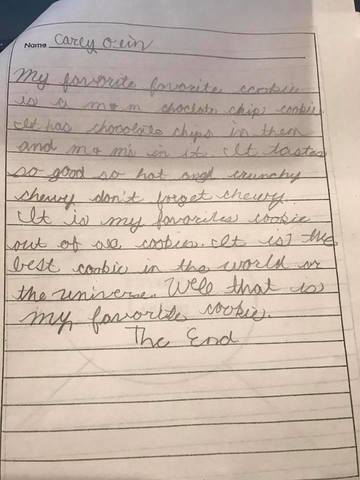 Name Carey Orin
My favorite favorite cookie
is a m & m choclate chip cookie
It has chocolate chips in them
and m & m's in it. It tastes
so good so hot and crunchy
chewy don't forget chewy.
It is my favorites cookie
out of all cookies. It is the
best cookie in the world or
the universe. Well that is
my favorite cookie.
The End